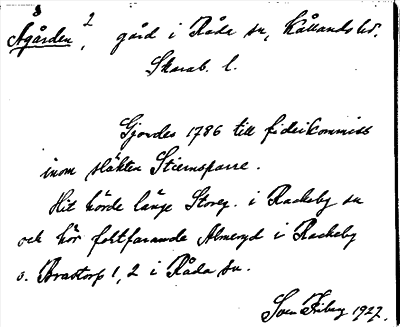 Ågården 2, gård i Råda sn, Kållands hd.
Skarab. l.
Gjordes 1786 till fideikommiss
inom släkten Stiernsparre.
Hit hörde länge Storeg. i Rackeby sn
och hör fortfarande Almeryd i Rackeby
o. Brastorp 1, 2 i Råda sn.
1927.